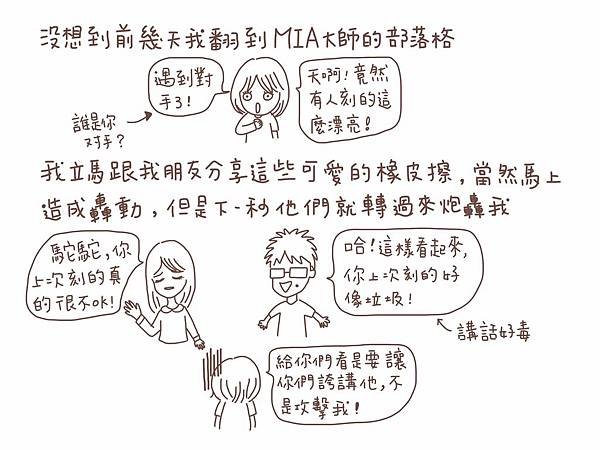 沒想到前幾天我翻到MIA大師的部落格
遇到對
手了!
天啊!竟然
有人刻的這
麼漂亮!
誰是你
対手?
我立馬跟我朋友分享這些可愛的橡皮擦,當然馬上
造成轟動,但是下一秒他們就轉過來炮轟我
駝駝,你
上次刻的真
的很不OK!
哈!這樣看起來,
你上次刻的好
像垃圾!
講話好毒
給你們看是要讓
你們誇講他,不
是攻擊我!